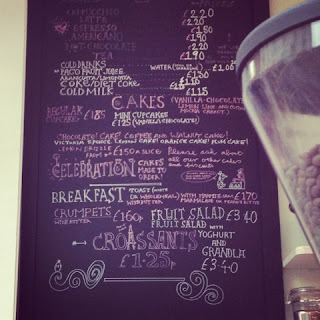 CAPPUCCHINO £2.20
LATTE £2.20
ESPRESSO £1.50
AMERICANO £1.90
HOT-CHOCOLATE £2.20
TEA £1.90
COLD DRINKS WATER £1.00
PAGO FRUIT JUICE
ARANCIATA/LIMONATA £1.30
COKE/DIET COKE £1.10
COLD MILK £1.15
CAKES (VANILLA-CHOCOLATE
REGULAR MINI CUPCAKES
CUPCAKES £1.85 £1.25 (VANILLA/CHOCOLATE)
CHOCOLATE CAKE COFFEE AND WALNUT CAKE!
VICTORIA SPONGE LEMON CAKE! ORANGE CAKE! PLUM CAKE!
FROM £1.50 A SLICE Please ask about
all our other cakes
and biscuits
CELEBRATION CAKES
MADE TO
ORDER!
BREAKFAST TOAST WITH MARMITE JAM £1.70
MARMALADE OR PEANUT BUTTER
CRUMPETS £1.60 FRUIT SALAD £3.40
WITH BUTTER
FRUIT SALAD WITH
YOGHURT
AND
GRANOLA
£3.40
CROISSANTS
£1.25